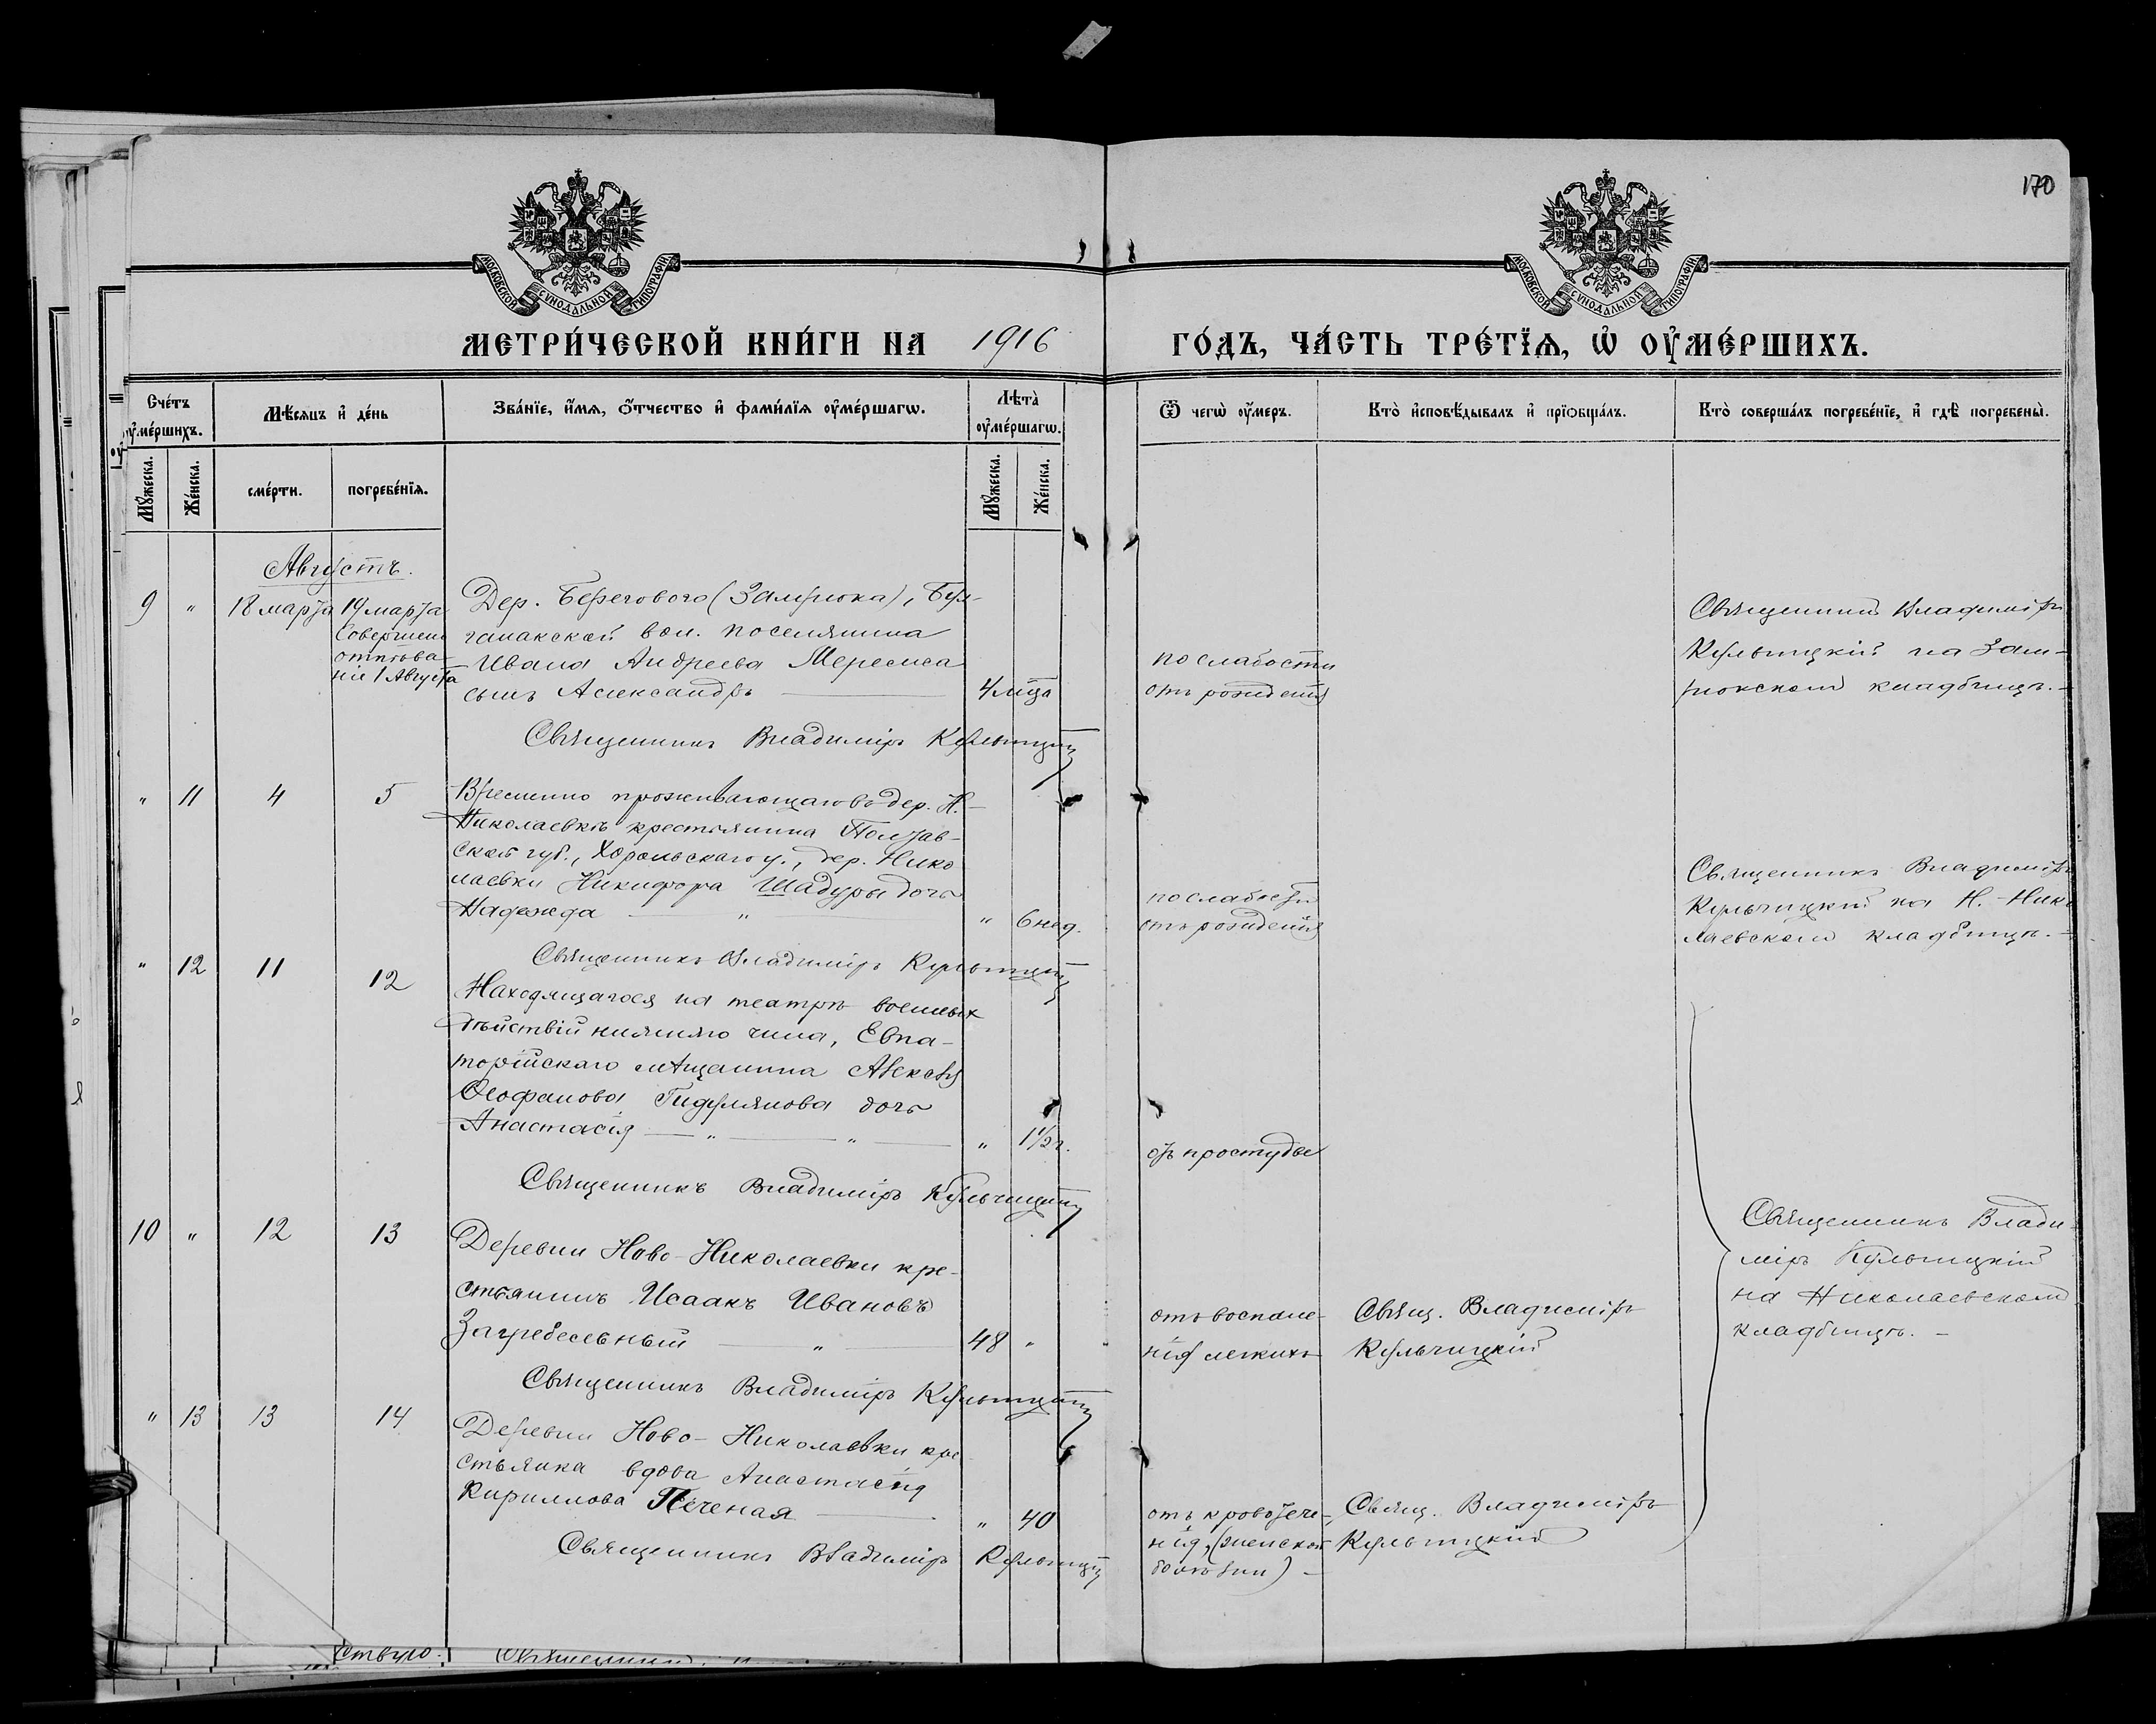 170
МОСКОВСКОЙ СѴНОДАЛЬНОЙ ТИПОГРАФІИ
МОСКОВСКОЙ СѴНОДАЛЬНОЙ ТИПОГРАФІИ
МЕТРИ́ЧЕСКОЙ КНИ́ГИ НА 1916 ГО́ДЪ, ЧА́СТЬ ТРЕ́ТЇѦ, Ѡ҆ ОУ҆МЕ́РШИХЪ.
Сче́тъ оу҆ме́ршихъ.
Мѣ́сяцъ и҆ де́нь
Зва́нїе, и҆́мѧ, ѻ҆́тчество и҆ фами́лїѧ оу҆ме́ршагѡ.
Лѣ́та̀ оу҆ме́ршагѡ.
Ѿ чегѡ̀ оу҆́меръ.
Кто̀ и҆сповѣ́дывалъ и҆ прїѻбща́лъ.
Кто̀ соверша́лъ погребе́нїе, и҆ гдѣ̀ погребены̀.
Мꙋ́жеска.
Же́нска.
сме́рти.
погребе́нїѧ.
Мꙋ́жеска.
Же́нска.
Августъ.
9 " 18 марта 19 марта
Совершено
отпѣва-
ніе 1 Августа
Дер. Берегового (Замрюка), Бул-
ганакской вол. поселянина
Ивана Андреева
сынъ Александръ
4 м-ца
по слабости
отъ рожденія
Священникъ Владиміръ
Кульчицкій на Зам-
рюкскомъ кладбищѣ. -
Священникъ Владиміръ Кульчицкій
" 11 4 5
Временно проживающаго въ дер. Н.-
Николаевкѣ крестьянина Полтав-
ской губ., Хорольскаго у., дер. Нико
лаевки Никифора Шадуры дочь
Надежда "
" 6 нед.
по слабости
отъ рожденія
Священникъ Владиміръ
Кульчицкій на Н.-Нико
лаевскомъ кладбищѣ. -
Священникъ Владиміръ Кульчицкій
" 12 11 12
Находящагося на театрѣ военныхъ
дѣйствій нижняго чина, Евпа-
торійскаго мѣщанина Алексѣя
Ѳеофанова Гидулянова дочь
Анастасія " "
" 1 1/2 г.
отъ простуды
Священникъ Владиміръ Кульчицкій
10 " 12 13
Деревни Ново-Николаевки кре-
стьянинъ Исаакъ Ивановъ
Загребельный "
48 "
отъ воспале-
нія легкихъ
Свящ. Владиміръ
Кульчицкій
Священникъ Влади-
міръ Кульчицкій
на Николаевскомъ
кладбищѣ. -
Священникъ Владиміръ Кульчицкій
" 13 13 14
Деревни Ново-Николаевки кре
стьянка вдова Анастасія
Кириллова Печеная
" 40
отъ кровотече-
нія, (женской
болѣзни) -
Свящ. Владиміръ
Кульчицкій
Священникъ Владиміръ Кульчицкій